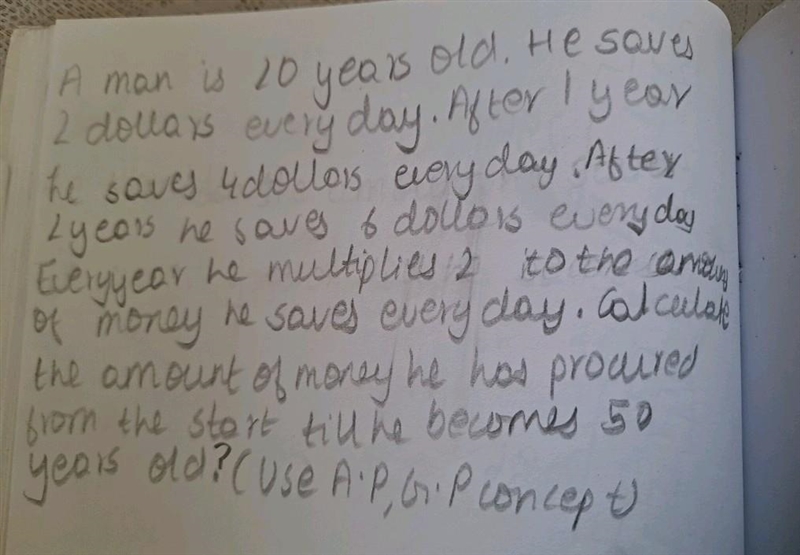 A man is 20 years old. He saves
2 dollars every day. After 1 year
he saves 4 dollars every day. After
2 years he saves 6 dollars every day
Everyyear he multiplies 2 to the amount
of money he saves every day. Calculate
the amount of money he has procured
from the start till he becomes 50
years old? (Use A.P, G.P concept)